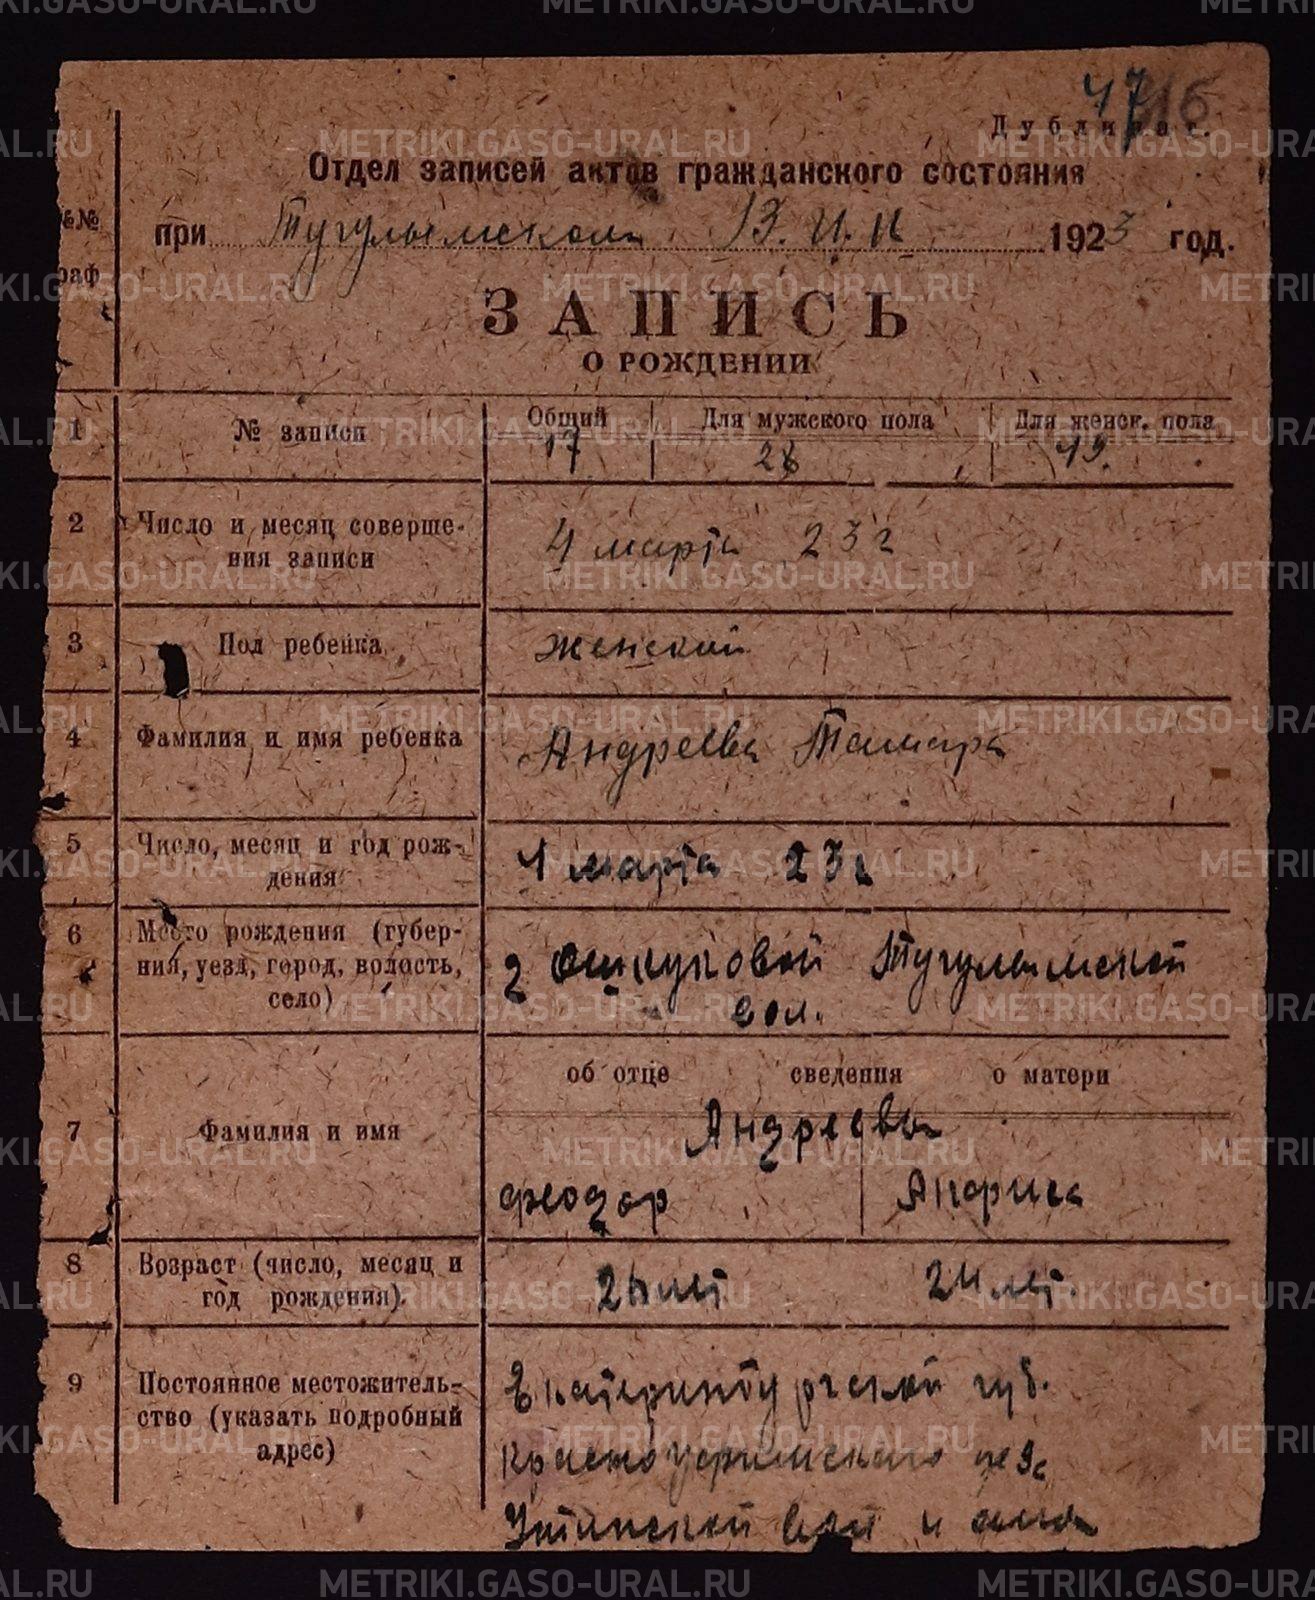 METRIKI.GASO-URAL.RU
47
Дубликат.
Отдел записей актов гражданского состояния
№№ граф
при Тугулымском В.И.К 1923 год.
ЗАПИСЬ
О РОЖДЕНИИ
1 № записи Общий Для мужского пола Для женск. пола
19.
2 Число и месяц соверше-
ния записи
4 марта 23 г
3 Пол ребенка женский
4 Фамилия и имя ребенка Андреева Тамара
5 Число, месяц и год рож-
дения
1 марта 23 г
6 Место рождения (губер-
ния, уезд, город, волость,
село)
Ошкуковой Тугулымской
вол.
об отце сведения о матери
7 Фамилия и имя Андреевы
Феодор
8 Возраст (число, месяц и
год рождения).
лет 24 лет.
9 Постоянное местожитель-
ство (указать подробный
адрес)
Екатеринбургской губ.
Красноуфимского уезда
Уткинской вол и